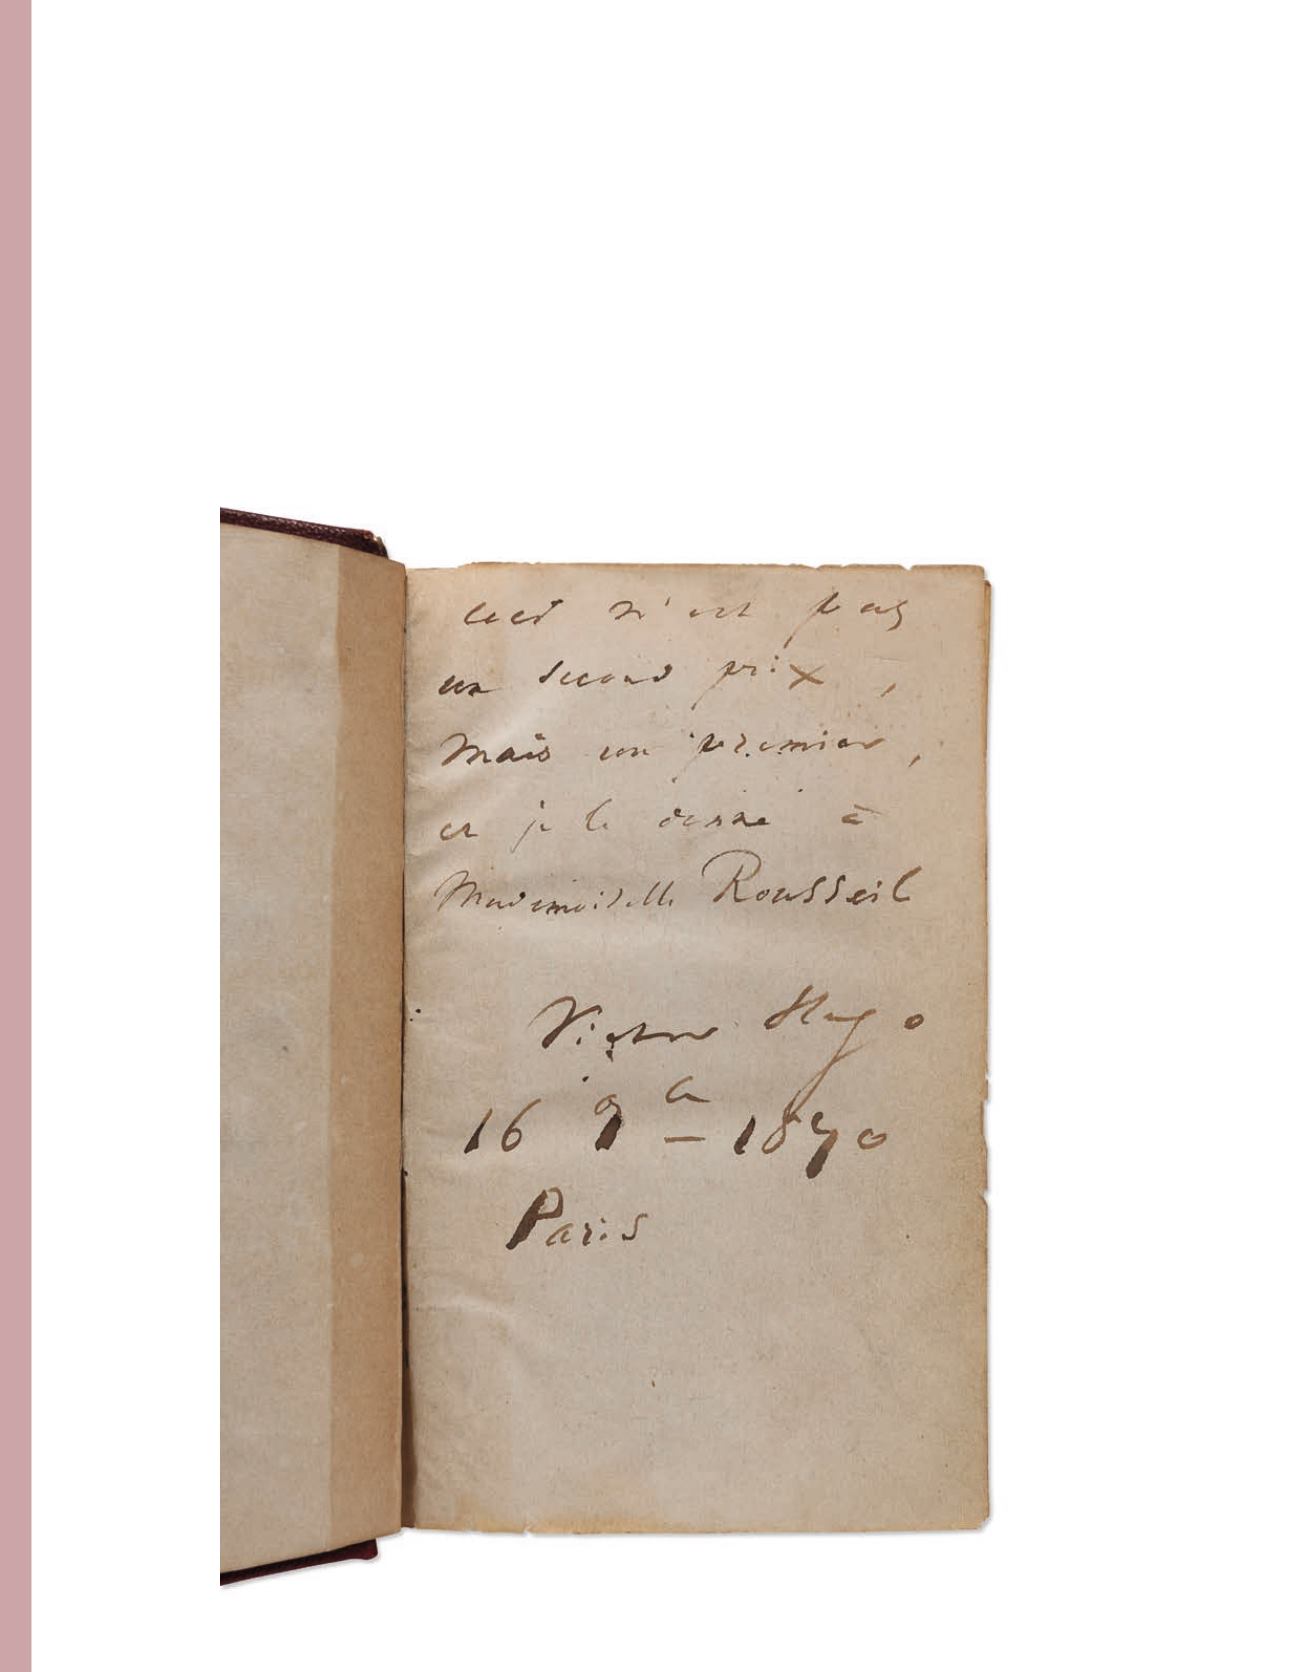 ceci n'est pas
un second prix,
mais un premier,
et je le donne à
Mademoiselle Rousseil
Victor Hugo
16 9bre 1870
Paris